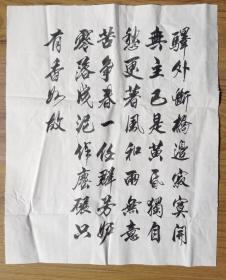 驛外斷橋邊寂寞開
無主已是黃昏獨自
愁更著風和雨無意
苦爭春一任群芳妒
零落成泥作塵碾只
有香如故